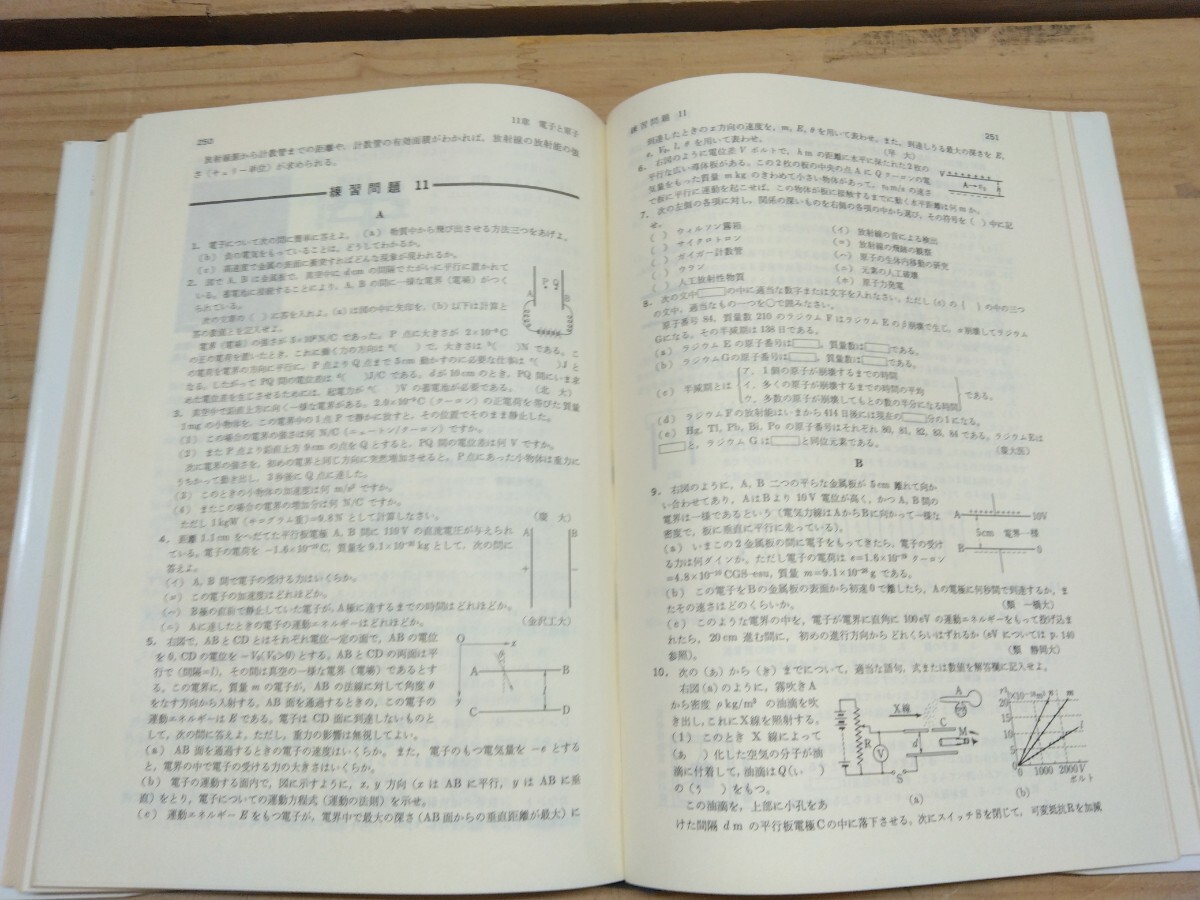 250
11章 電子と原子
放射線源から計数管までの距離や，計数管の有効面積がわかれば，放射線の放射能の強
さ（キュリー単位）が求められる。
練習問題 11
A
1. 電子について次の問に簡単に答えよ。（a） 物質中から飛び出させる方法三つをあげよ。
（b） 負の電気をもっていることは，どうしてわかるか。
（c） 高速度で金属の表面に衝突すればどんな現象が現われるか。
2. 図で A, B は金属板で，真空中に d cm の間隔でたがいに平行に置かれて
いる。蓄電池に接続することにより，A, B の間に一様な電界（電場）がつく
られている。
次の文章の（ ）に答を入れよ。(a) は図の中に矢印を，(b) 以下は計算と
答の数値とを記入せよ。
の正の電荷を置いたとき，これに働く力の方向は
の電荷を電界の方向に平行に，P 点より Q 点まで 5cm 動かすのに必要な仕事は
なる。したがって PQ 間の電位差は
た電位差を生じさせるためには，起電力が （ ）V の蓄電池が必要である。 （北 大）
3. 真空中で鉛直上方に向く一様な電界がある。
1mg の小物体を，この電界中の1点 P で静かに放すと，その位置でそのまま静止した。
（1） この場合の電界の強さは何 N/C（ニュートン/クーロン）ですか。
（2） また P 点より鉛直上方 9cm の点を Q とすると，PQ 間の電位差は何 V ですか。
次に電界の強さを，初めの電界と同じ方向に突然増加させると，P点にあった小物体は重力に
うちかって動き出し，3秒後に Q 点に達した。
（3） このときの小物体の加速度は何 m/s² ですか。
（4） またこの場合の電界の増加分は何 N/C ですか。
ただし 1kgW（キログラム重）=9.8N として計算しなさい。 （慶 大）
4. 距離 1.1cm をへだてた平行板電極 A, B 間に 110V の直流電圧が与えられ
ている。電子の電荷を
答えよ。
（イ） A, B 間で電子の受ける力はいくらか。
（ロ） この電子の加速度はどれほどか。
（ハ） B極の直前で静止していた電子が，A極に達するまでの時間はどれほどか。
（ニ） Aに達したときの電子の運動エネルギーはどれほどか。 （金沢工大）
A
B
+
−
5. 右図で，ABとCDとはそれぞれ電位一定の面で，ABの電位
を0，CDの電位を −V₀(V₀>0)とする。ABとCDの両面は平
行で（間隔=l），その間は真空の一様な電界（電場）であるとす
る。この電界に，質量 m の電子が，ABの法線に対して角度 θ
をなす方向から入射する。AB 面を通過するときの，この電子の
運動エネルギーは E である。電子は CD 面に到達しないものと
して，次の問に答えよ。ただし，重力の影響は無視してよい。
O
x
y
θ
A
B
C
D
l
（a） AB 面を通過するときの電子の速度はいくらか。また，電子のもつ電気量を −e とする
と，電界の中で電子の受ける力の大きさはいくらか。
（b） 電子の運動する面内で，図に示すように，x, y 方向（x は AB に平行，y は AB に垂
直）をとり，電子についての運動方程式（運動の法則）を示せ。
（c） 運動エネルギー E をもつ電子が，電界中で最大の深さ（AB 面からの垂直距離が最大）に
練習問題 11
251
到達したときの x 方向の速度を，m, E, θ を用いて表わせ。また，到達しうる最大の深さを E,
e, V₀, l, θ を用いて表わせ。 （平 大）
6. 右図のように電位差 V ボルトで，h m の距離に水平に保たれた2枚の
平行な広い導体板がある。この2枚の板の中央の点 A に Q クーロンの電
気量をもった質量 m kg のきわめて小さい物体があって，v₀ m/s の速さ
で板に平行に運動を起せば，この物体が板に接触するまでに動く水平距離は何 m か。
7. 次の左側の各項に対し，関係の深いものを右側の各項の中から選び，その符号を（ ）中に記
せ。
（ ） ウィルソン霧箱
（イ） 放射線の音による検出
（ ） サイクロトロン
（ロ） 放射線の飛跡の観察
（ ） ガイガー計数管
（ハ） 原子の生体内移動の研究
（ ） ウラン
（ニ） 元素の人工破壊
（ ） 人工放射性物質
（ホ） 原子力発電
8. 次の文中□の中に適当な数字または文字を入れなさい。ただし（c）の｛ ｝の中の三つ
の文中，適当なもの一つを○で囲みなさい。
原子番号 84，質量数 210 のラジウム F はラジウム E の β 崩壊で生じ，α 崩壊してラジウム
G になる。その半減期は 138 日である。
（a） ラジウム E の原子番号は□，質量数は□である。
（b） ラジウム G の原子番号は□，質量数は□である。
（c） 半減期とは
ア．1個の原子が崩壊するまでの時間
イ．多くの原子が崩壊するまでの時間の平均
ウ．多数の原子が崩壊してもとの数の半分になる時間
である。
（d） ラジウム F の放射能はいまから 414 日後には現在の□分の1になる。
（e） Hg, Tl, Pb, Bi, Po の原子番号はそれぞれ 80, 81, 82, 83, 84 である。ラジウムEは
□と，ラジウム G は□と同位元素である。
B
9. 右図のように，A, B 二つの平らな金属板が 5cm 離れて向か
い合わせてあり，AはBより 10V 電位が高く，かつ A, B 間の
電界は一様であるという（電気力線はAからBに向かって一様な
密度で，板に垂直に平行に走っている）。
A
10V
5cm
電界一様
B
0
（a） いまこの2金属板の間に電子をもってきたら，電子の受け
る力は何ダインか。ただし電子の電荷は e=1.6×10⁻¹⁹ クーロン
=4.8×10⁻¹⁰ CGS-esu，質量 m=9.1×10⁻²⁸ g である。
（b） この電子をBの金属板の表面から初速 0 で離したら，Aの電極に何秒間で到達するか，ま
たその速さはどのくらいか。 （類 一橋大）
（c） このような電界の中を，電子が電界に直角に 100eV の運動エネルギーをもって投げ込ま
れたら，20cm 進む間に，初めの進行方向からどれくらいはずれるか（eV については p. 140
参照）。 （類 静岡大）
10. 次の（あ）から（き）までについて，適当な語句，式または数値を解答欄に記入せよ。
右図(a)のように，霧吹きA
から密度 ρ kg/m³ の油滴を吹
き出し，これにX線を照射する。
（1） このとき X 線によって
（あ ）化した空気の分子が油
滴に付着して，油滴は Q（い ）
の（う ）をもつ。
この油滴を，上部に小孔をあ
けた間隔 d m の平行板電極Cの中に落下させる。次にスイッチSを閉じて，可変抵抗Rを加減
X線
A
C
M
D
d
R
V
S
(a)
20
15
10
5
0
1000
2000
ボルト
(b)